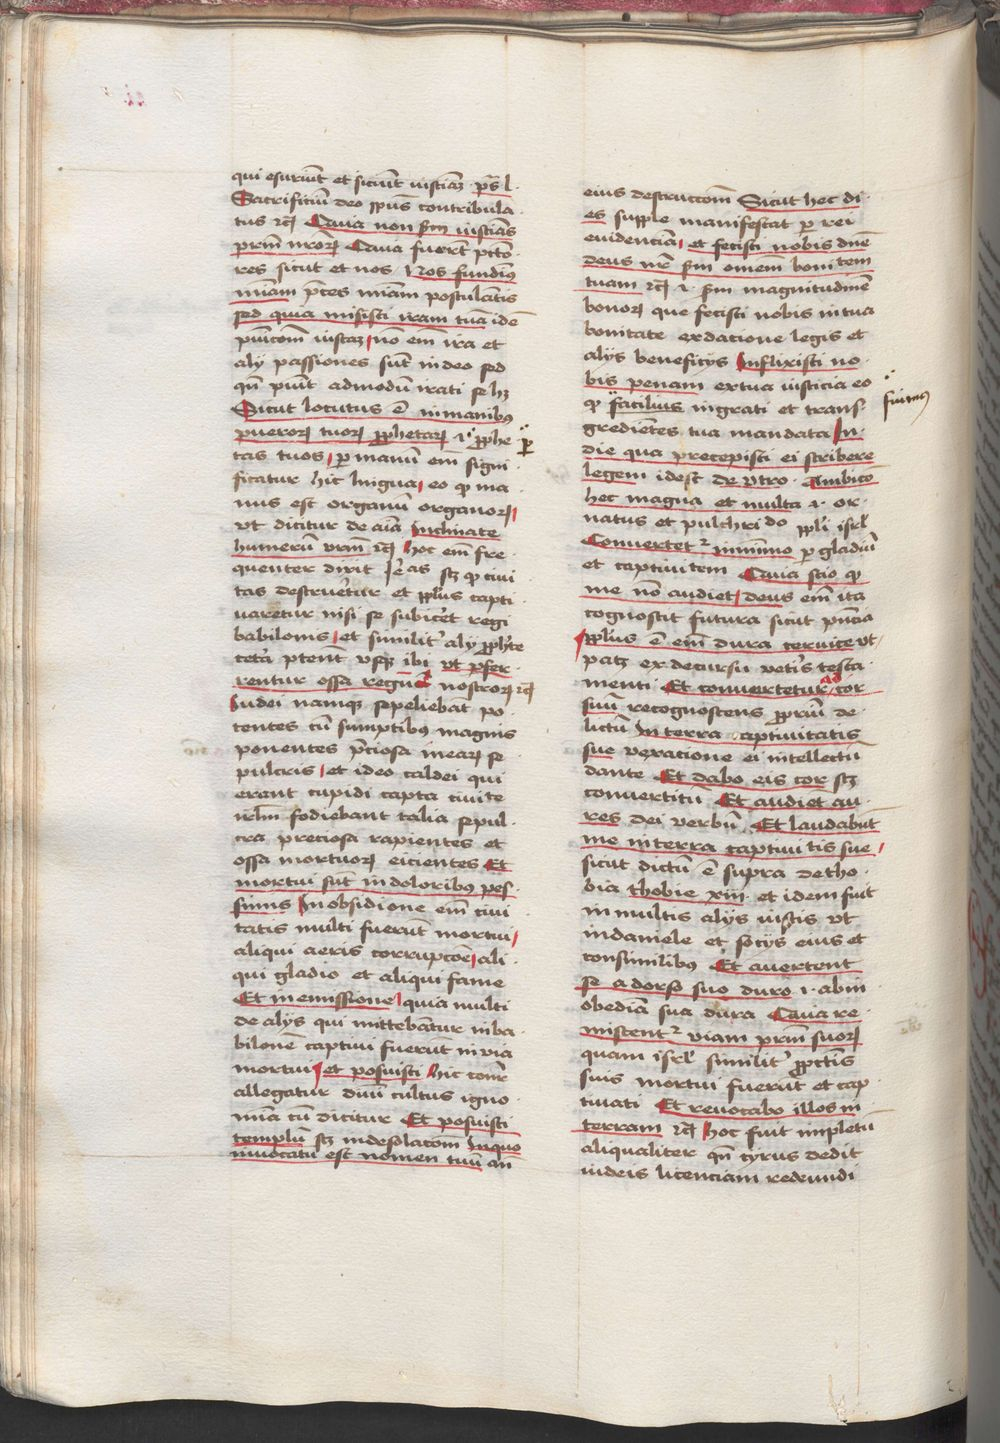 qui esuriūt et siciūt iusticiaꝫ ps̄ l
Sacrificiū deo sp̄us contribula
tus ⁊cꝫ Quia non scd̄m iusticias
patrū nr̄oꝝ Quia fuerūt pctō
res sicut et nos Nos fundim⁹
mīam p̄ces mīam postulātis
sed quia misisti iram tuā idē
puicōm iustaꝫ nō em̄ ira et
alij passiones sūt in deo sed
qn̄ puīt admodū irati se hꝫ
Sicut locutus ē in manib⁹
pueroꝝ tuoꝝ ꝓphetaꝝ .i. ꝓphe
tas tuos ꝑ manū em̄ signi
ficatur hic lingua eo ꝙ ma
nus est organū organoꝝ
vt dicitur de aīa Inclinate
humerū vr̄m ⁊cꝫ Hoc em̄ fre
quenter dixit Jeᵉas scꝫ ꝙ ciui
tas destrueretur et ppl̄us capti
uaretur nisi se subiceret regi
babilonis et similit̉ alij ꝓphete
cet̉a ptēnt vsqꝫ ibi vt ꝑfer
rentur ossa regū nostroꝝ ⁊cꝫ
Iudei namqꝫ sepeliebāt po
tentes cū sumptib⁹ magnis
ponentes p̄ciosa in eaꝝ se
pulcris et ideo caldei qui
erant cupidi capta ciuite
irl̄m fodiebant talia sepul
cra preciosa rapientes et
ossa mortuoꝝ eicientes Et
mortui sūt in dolorib⁹ pes
simis In obsidione em̄ ciui
tatis multi fuerūt mortui
aliqui aeris corrupcōe ali
qui gladio et aliqui fame
Et in emissione quia multi
de alijs qui mittebātur in ba
bilonē captiui fuerūt in via
mortui et posuisti Hic
allegatur diuī cultus igno
mīa cū dicitur Et posuisti
templū scꝫ in desolacōm In quo
inuocatū est nomen tuū an
ꝑ
eius destruccōm Sicut hec di
es supple manifestat ꝑ rei
euidenciā et fecisti nobis dn̄e
deus nr̄e scd̄m omnem bonitem
tuam ⁊cꝫ .i. scd̄m magnitudinē
bonoꝝ que fecisti nobis in tua
bonitate ex dacione legis et
alijs beneficijs Inflixisti no
bis penam ex tua iusticia eo
ꝙ facilius ingrati et trans
fuimꝰ
gredientes tua mandata In
die qua precepisti ei scribere
legem idest deutro. Ambicō
hec magna et multa .i. or
natus et pulchrido ppl̄i isrl̄
Conuertet̉ in minimo ꝑ gladiū
et captiuitem Quia scio ꝙ
me nō audiet deus em̄ ita
cognoscit futura sicut pn̄cia
ppl̄us ē em̄ dura ceruice vt
patꝫ ex decursu vetis testa
menti Et conuertetur ad cor
suū recognoscens ꝓprium de
lictū In terra captiuitatis
sue vexacione ei intellectū
dante Et dabo eis cor scꝫ
conuertitū Et audiet au
res dei verbū Et laudabūt
me in terra captiuitis sue
sicut dictū ē supra de tho
bia thobie xiii et idem fuit
in multis alijs iustis vt
in daniele et socijs eius et
consimilib⁹ Et auertent
se a dorso suo duro .i. ab in
obediā sua dura Quia re
miscent̉ viam patrū suoꝝ
quam isrl̄ similit̉
suis mortui fuerūt et cap
tiuati Et reuocabo illos in
terram ⁊cꝫ Hoc fuit impletū
aliqualiter qn̄ cyrus dedit
iudeis licenciam redeundi